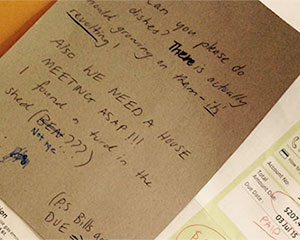 Can you please do
dishes? There is actually
mould growing on them - it's
revolting!
Also WE NEED A HOUSE
MEETING ASAP!!!
I found a turd in the
shed (BEA???)
Not me
(P.S. Bills a
DUE
Account No.
Total
Amount Due
Due Date
$207.
03 Jul 15
PAID